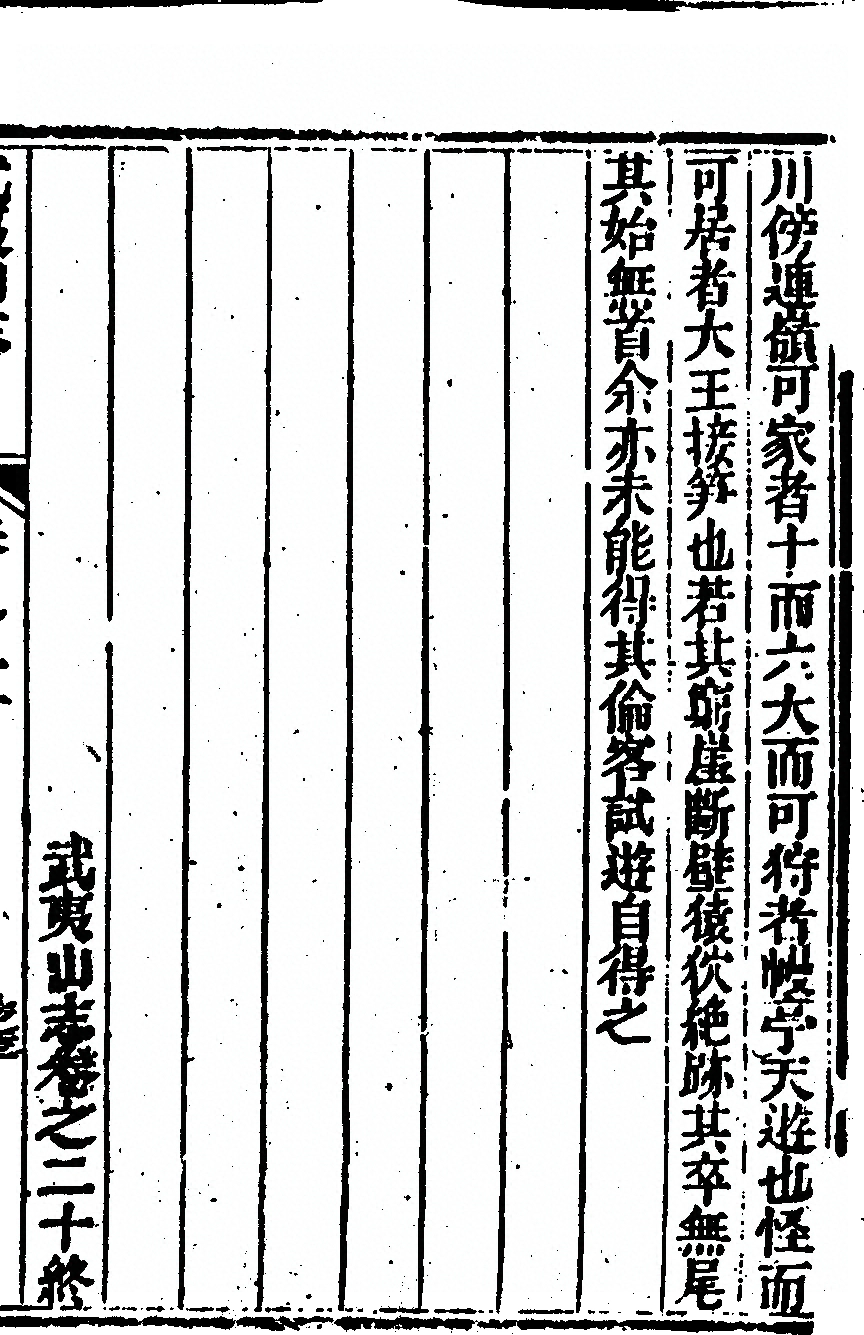 川傍連嶺可家者十而六大而可狩者幔亭天遊也怪而
可居者大王接笋也若其窮崖斷壁猿狖絶跡其卒無尾
其始無首余亦未能得其倫客試遊自得之
武夷山志卷之二十終